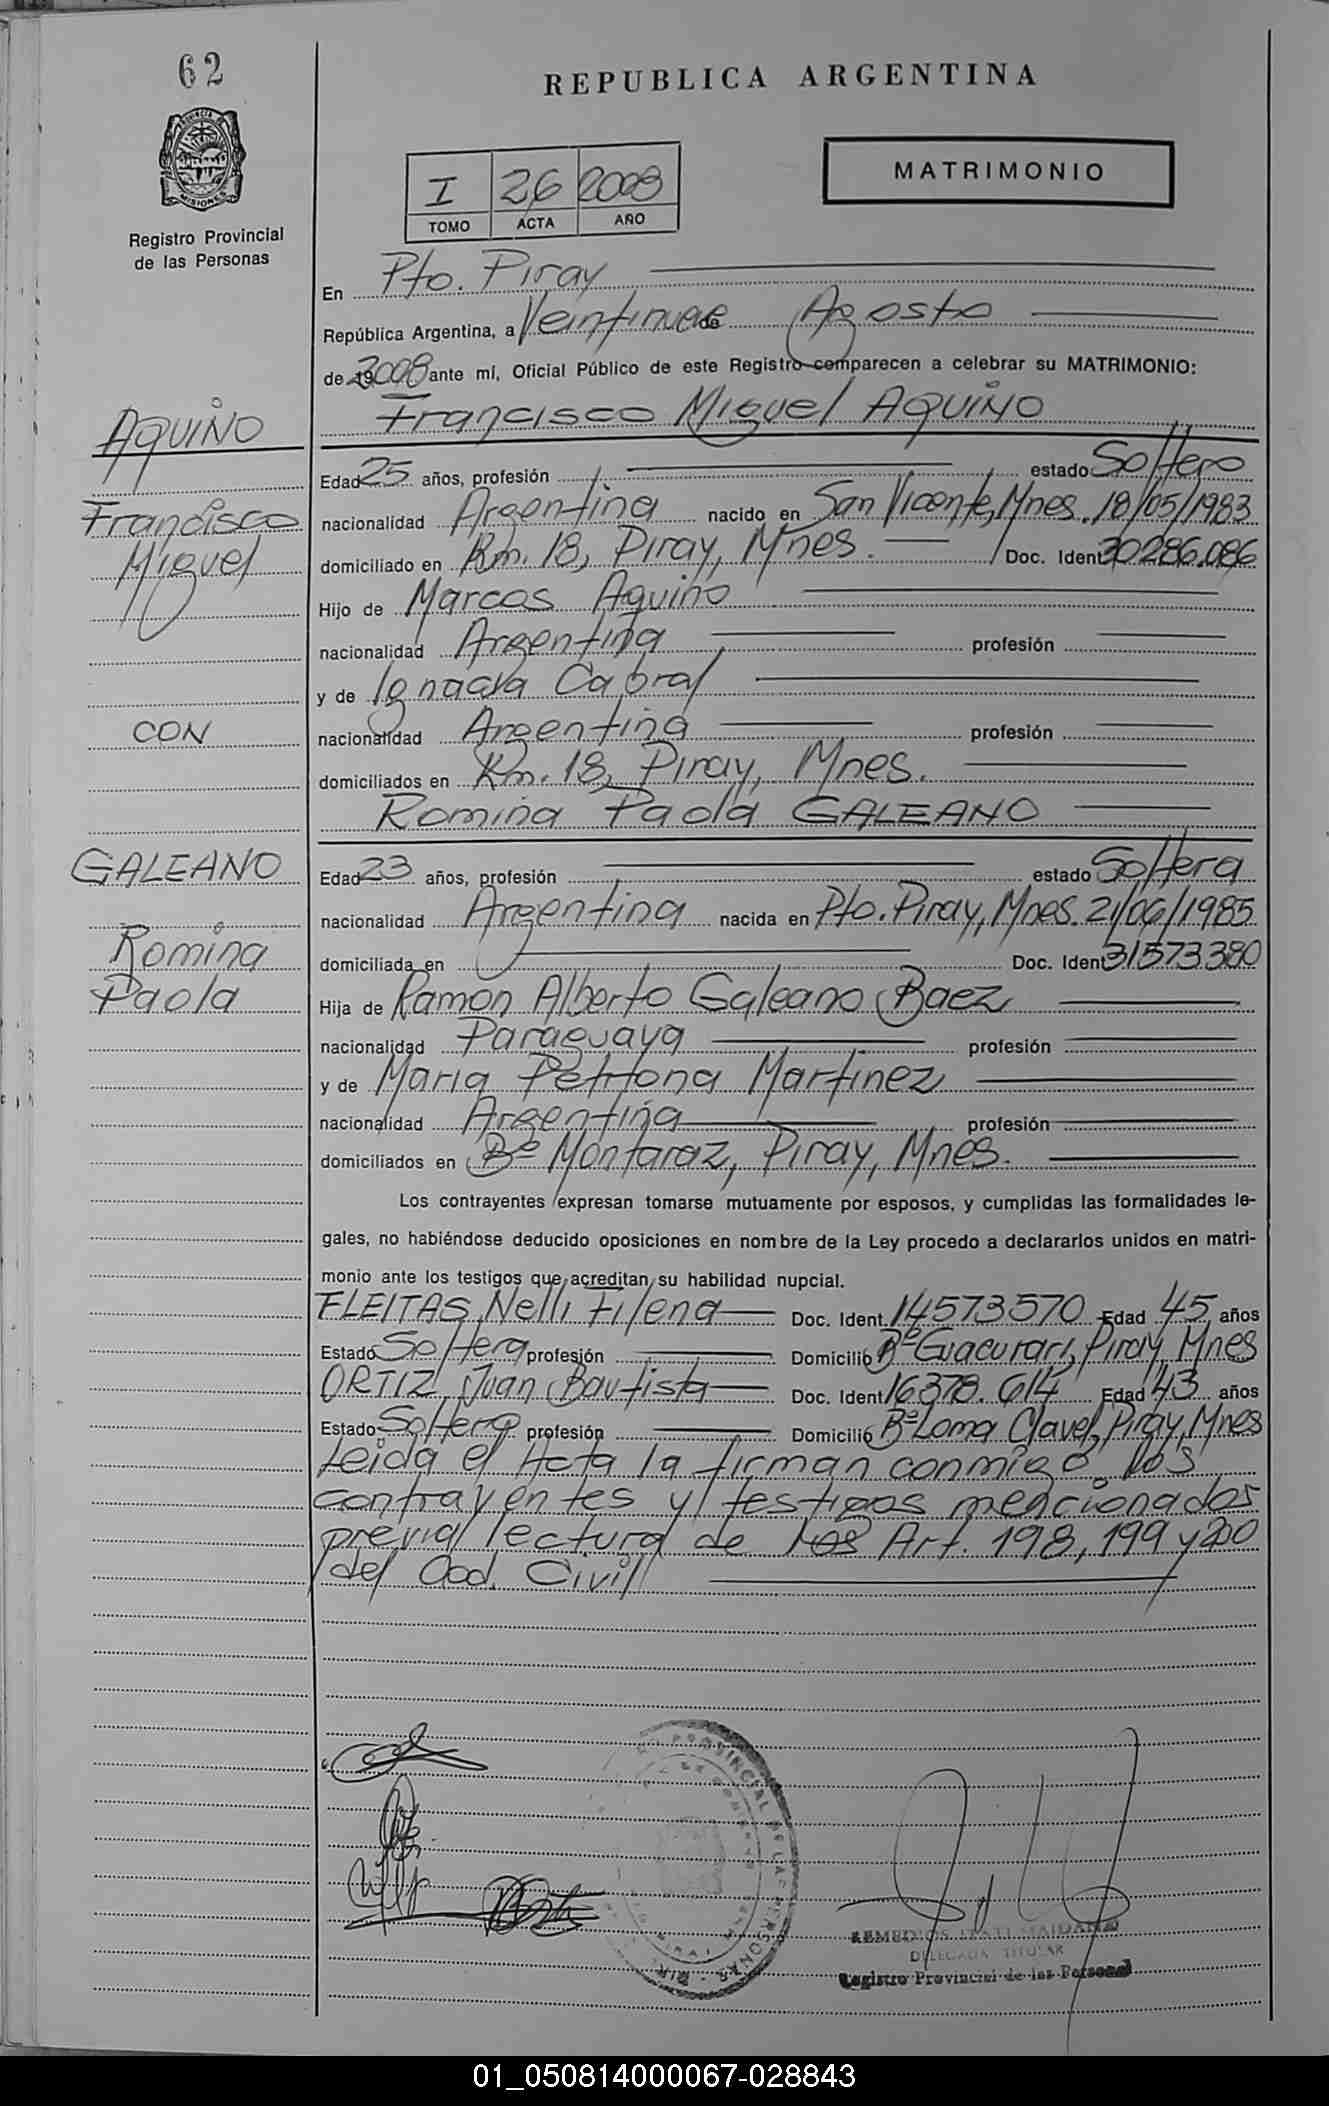 62
REPUBLICA ARGENTINA
PROVINCIA DE
MISIONES
Registro Provincial
de las Personas
I 26 2008
TOMO ACTA AÑO
MATRIMONIO
En Pto. Piray
República Argentina, a Veintinueve de Agosto
de 2008 ante mí, Oficial Público de este Registro comparecen a celebrar su MATRIMONIO:
Francisco Miguel AQUINO
AQUINO
Francisco
Miguel
CON
GALEANO
Romina
Paola
Edad 25 años, profesión estado Soltero
nacionalidad Argentina nacido en San Vicente, Mnes. 18/05/1983
domiciliado en Km. 18, Piray, Mnes. Doc. Ident 30286.086
Hijo de Marcos Aquino
nacionalidad Argentina profesión
y de Ignacia Cabral
nacionalidad Argentina profesión
domiciliados en Km. 18, Piray, Mnes.
Romina Paola GALEANO
Edad 23 años, profesión estado Soltera
nacionalidad Argentina nacida en Pto. Piray, Mnes. 21/06/1985
domiciliada en Doc. Ident 31573.380
Hija de Ramon Alberto Galeano Baez
nacionalidad Paraguaya profesión
y de Maria Petrona Martinez
nacionalidad Argentina profesión
domiciliados en Bº Montaraz, Piray, Mnes.
Los contrayentes expresan tomarse mutuamente por esposos, y cumplidas las formalidades le-
gales, no habiéndose deducido oposiciones en nombre de la Ley procedo a declararlos unidos en matri-
monio ante los testigos que acreditan su habilidad nupcial.
FLEITAS, Nelli Filena Doc. Ident. 14573570 Edad 45 años
Estado Soltera profesión Domicilió Bº Guacurari, Piray, Mnes
ORTIZ, Juan Bautista Doc. Ident 16378.614 Edad 43 años
Estado Soltero profesión Domicilió Bº Loma Clavel, Piray, Mnes
Leida el Acta la firman conmigo los
contrayentes y testigos mencionados
previa lectura de los Art. 198, 199 y 200
del Cod. Civil
PROVINCIAL DE LAS PERSONAS
REMEDIOS ITATI MAIDANA
DELEGADA TITULAR
Registro Provincial de las Personas
01_050814000067-028843